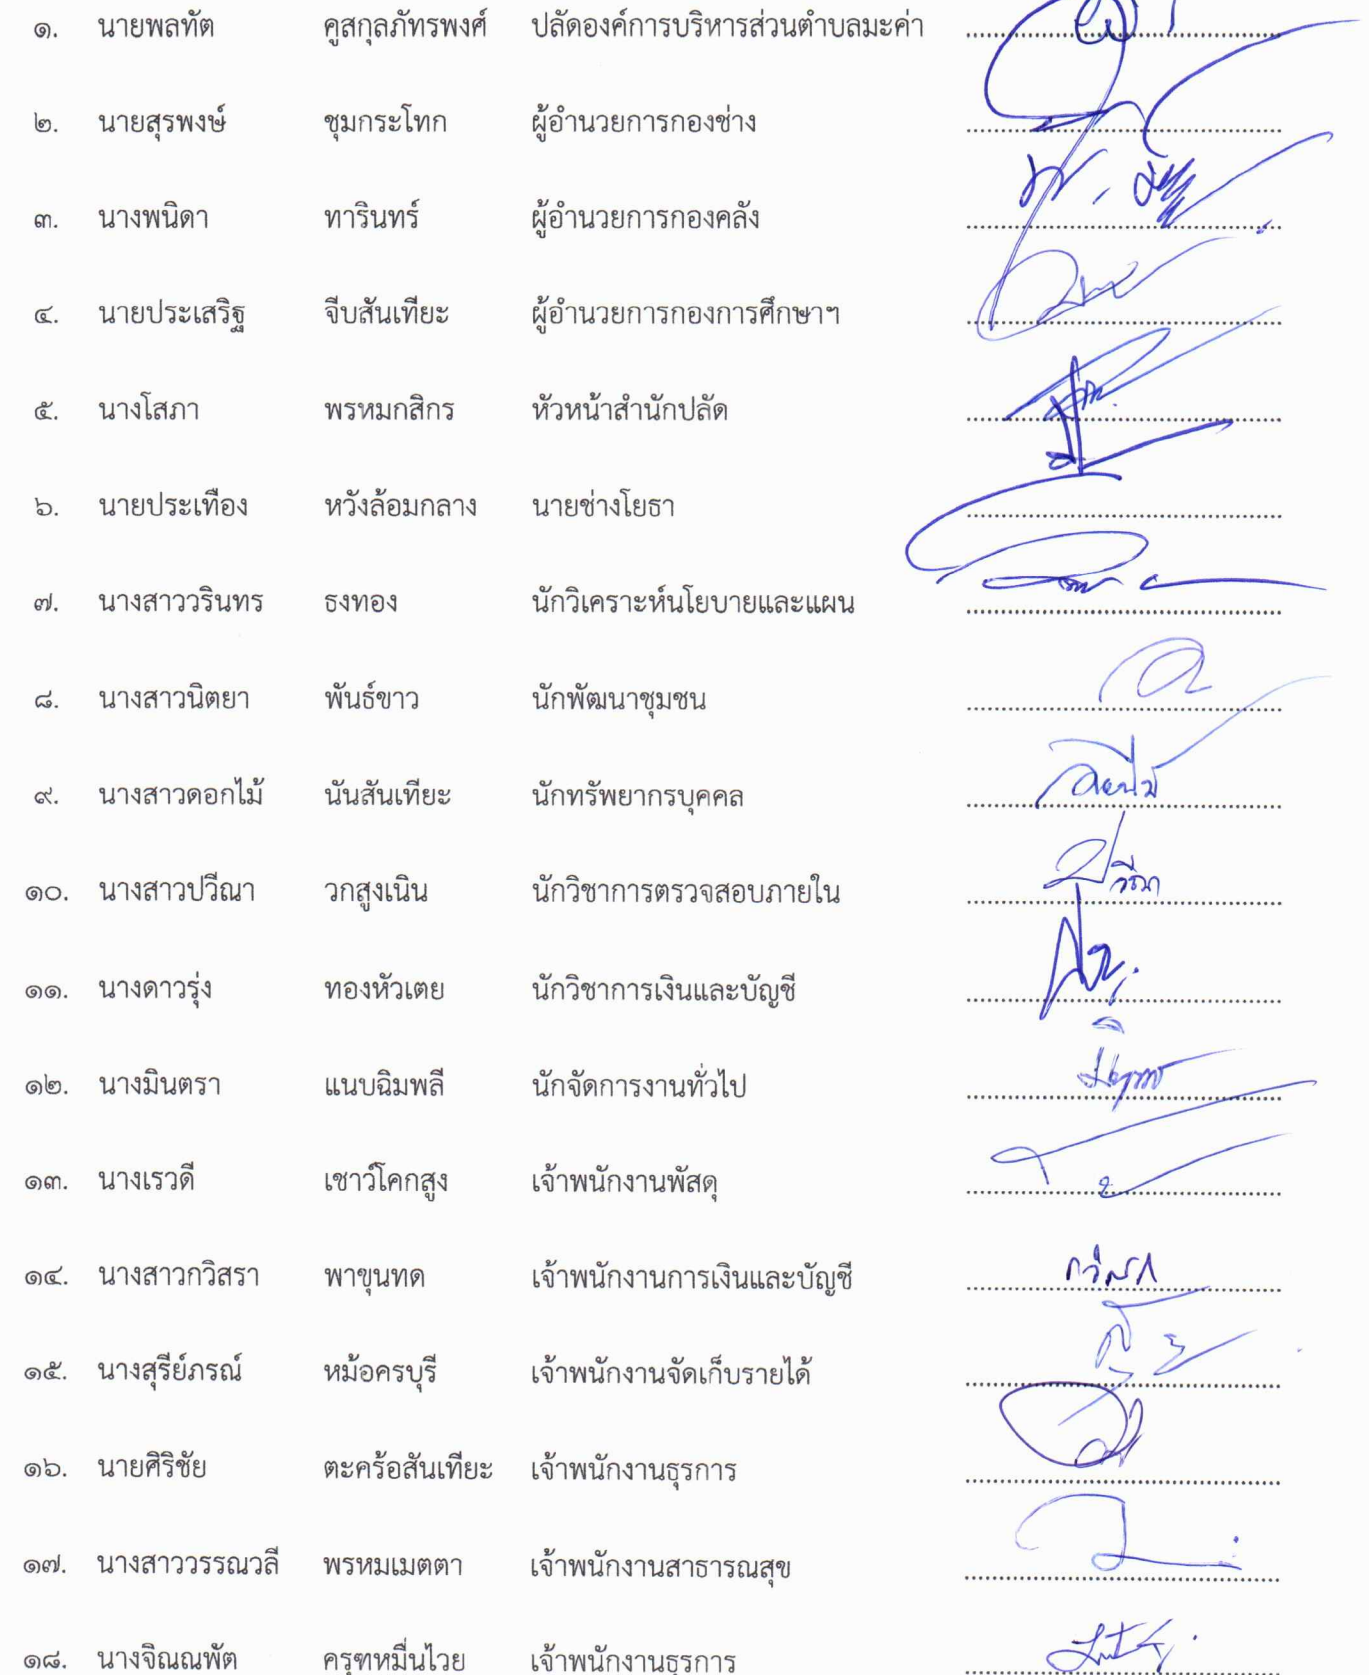 ๑. นายพลทัต คูสกุลภัทรพงศ์ ปลัดองค์การบริหารส่วนตำบลมะค่า
๒. นายสุรพงษ์ ชุมกระโทก ผู้อำนวยการกองช่าง
๓. นางพนิดา ทารินทร์ ผู้อำนวยการกองคลัง
๔. นายประเสริฐ จีบสันเทียะ ผู้อำนวยการกองการศึกษาฯ
๕. นางโสภา พรหมกสิกร หัวหน้าสำนักปลัด
๖. นายประเทือง หวังล้อมกลาง นายช่างโยธา
๗. นางสาววรินทร ธงทอง นักวิเคราะห์นโยบายและแผน
๘. นางสาวนิตยา พันธ์ขาว นักพัฒนาชุมชน
๙. นางสาวดอกไม้ นันสันเทียะ นักทรัพยากรบุคคล
๑๐. นางสาวปวีณา วกสูงเนิน นักวิชาการตรวจสอบภายใน ปวีณา
๑๑. นางดาวรุ่ง ทองหัวเตย นักวิชาการเงินและบัญชี
๑๒. นางมินตรา แนบฉิมพลี นักจัดการงานทั่วไป
๑๓. นางเรวดี เชาว์โคกสูง เจ้าพนักงานพัสดุ
๑๔. นางสาวกวิสรา พาขุนทด เจ้าพนักงานการเงินและบัญชี กวิสรา
๑๕. นางสุรีย์ภรณ์ หม้อครบุรี เจ้าพนักงานจัดเก็บรายได้
๑๖. นายศิริชัย ตะคร้อสันเทียะ เจ้าพนักงานธุรการ
๑๗. นางสาววรรณวลี พรหมเมตตา เจ้าพนักงานสาธารณสุข
๑๘. นางจิณณพัต ครุฑหมื่นไวย เจ้าพนักงานธุรการ